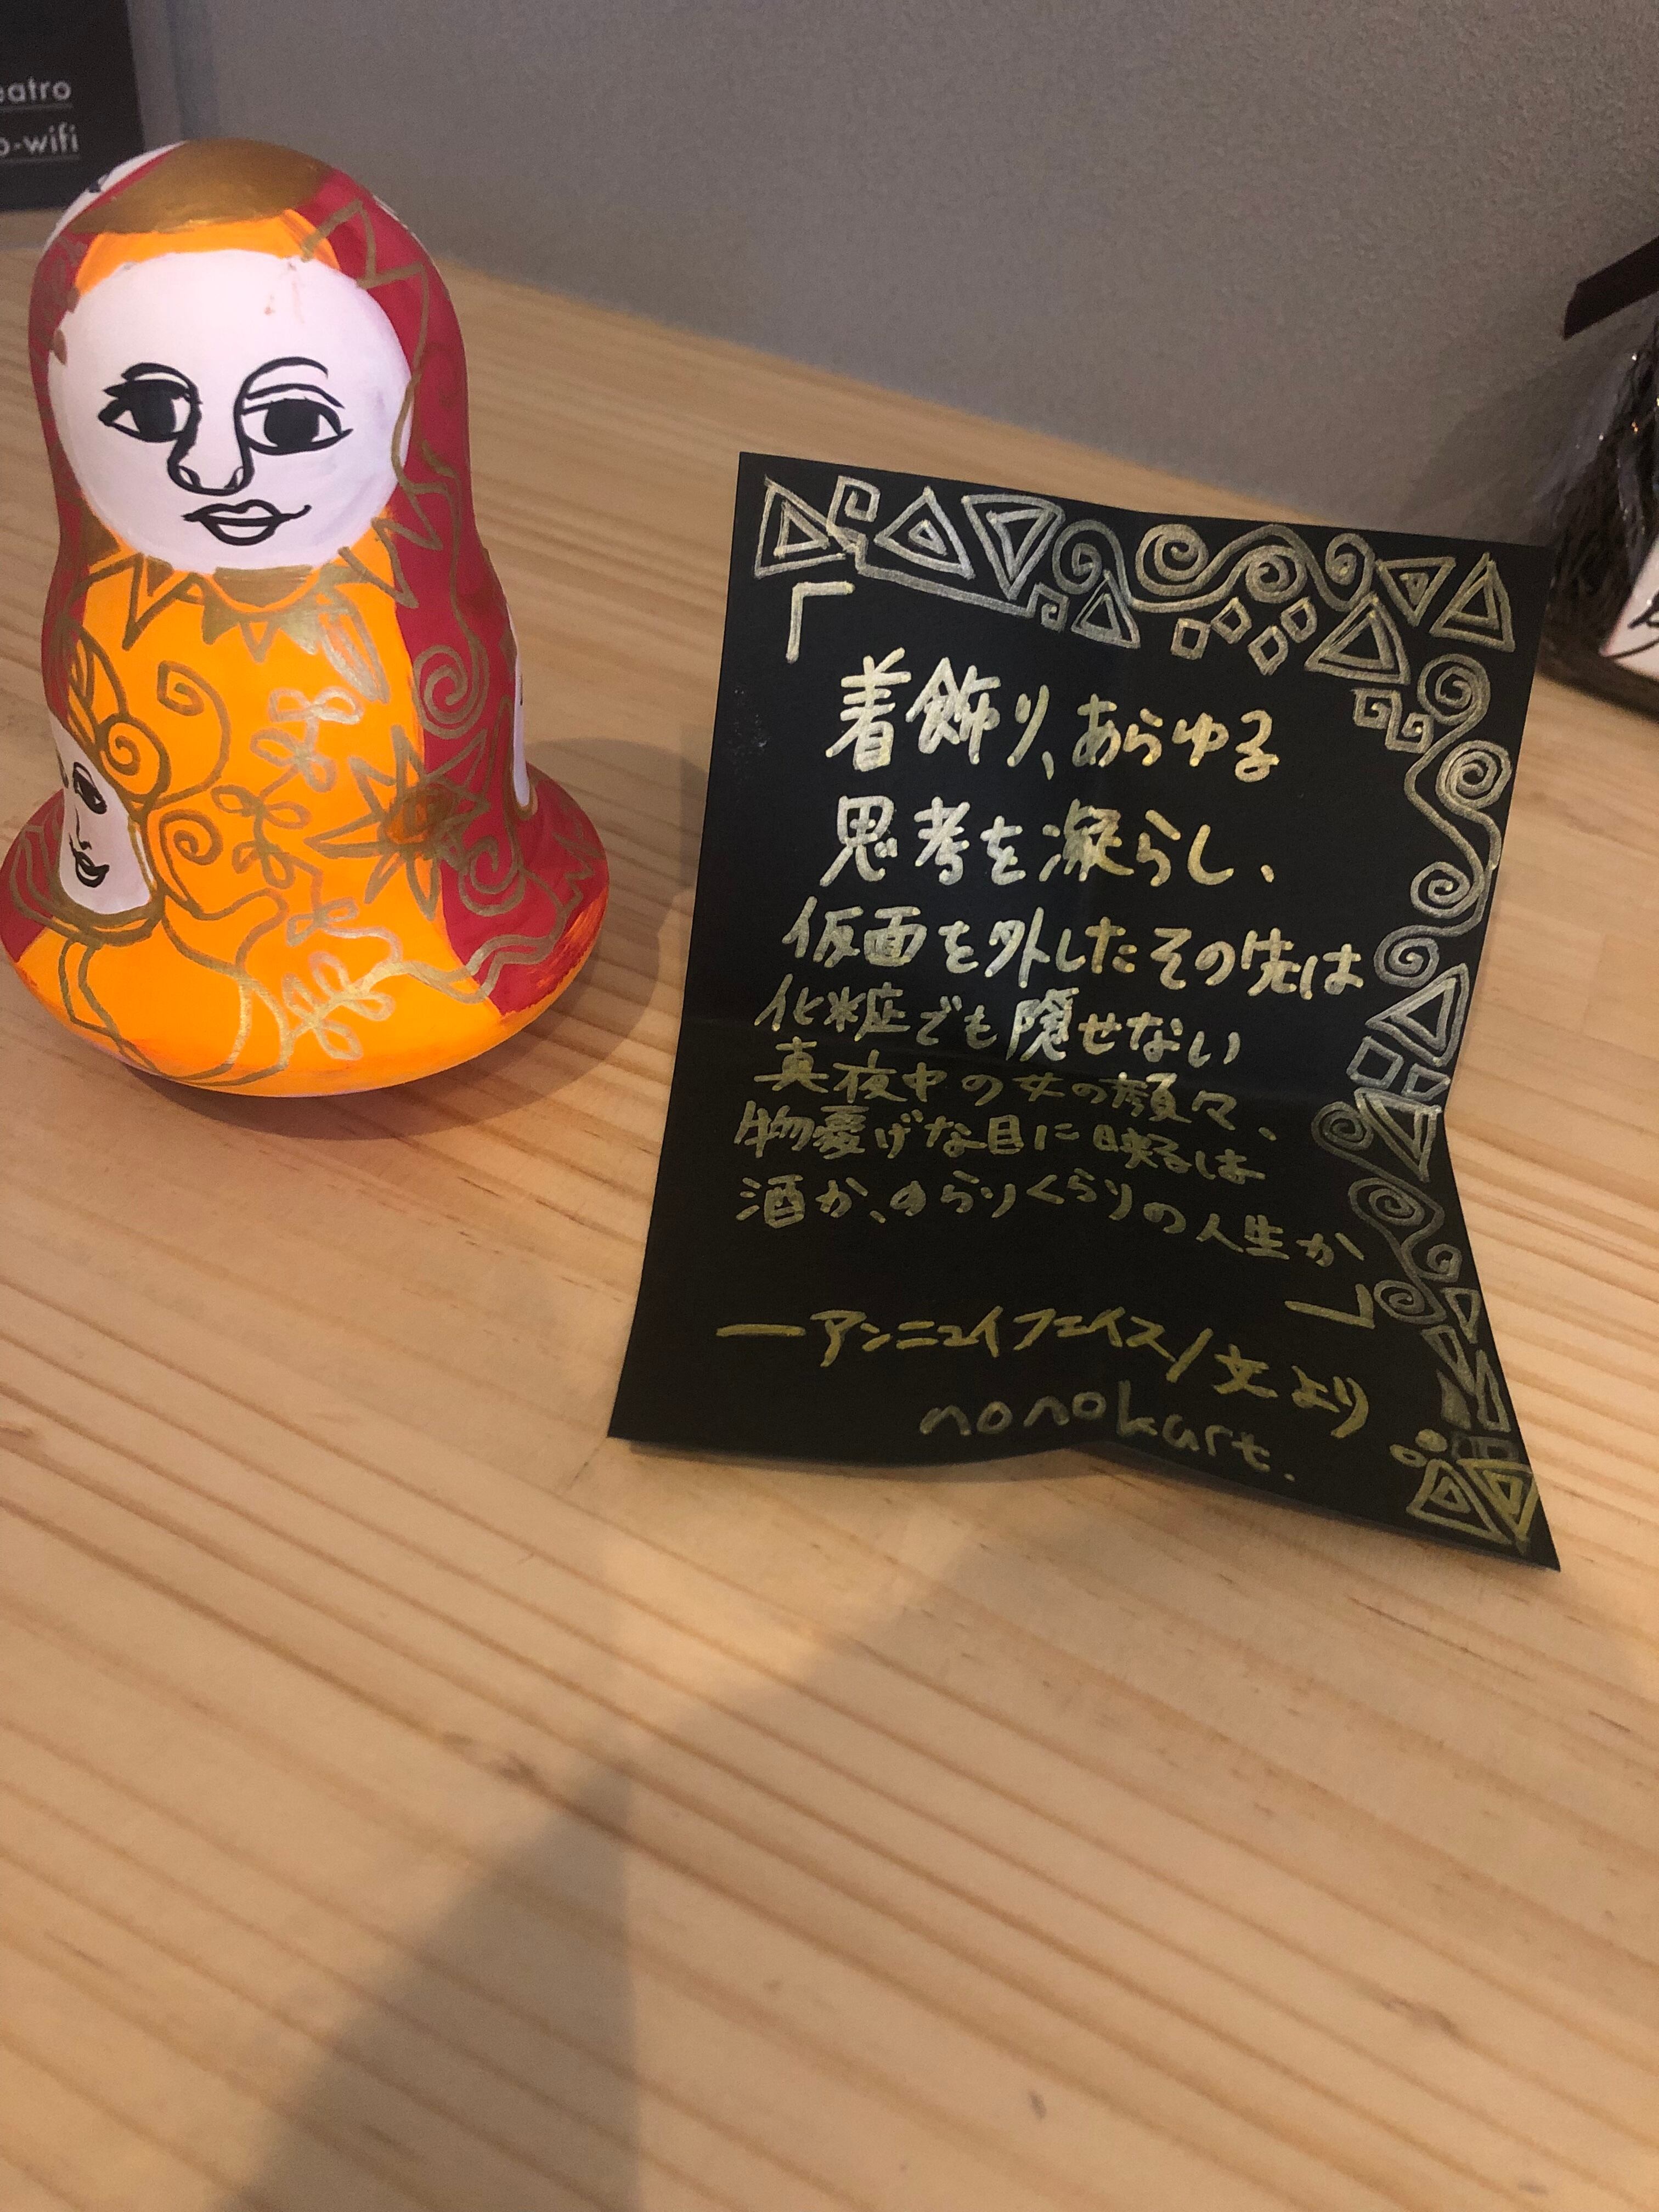 eatro
o-wifi
「
着飾り、あらゆる
思考を凝らし、
仮面を外したその先は
化粧でも隠せない
真夜中の女の顔々、
物憂げな目に映るは
酒か、のらりくらりの人生か
」
—アンニュイフェイス/文より
nonokart.